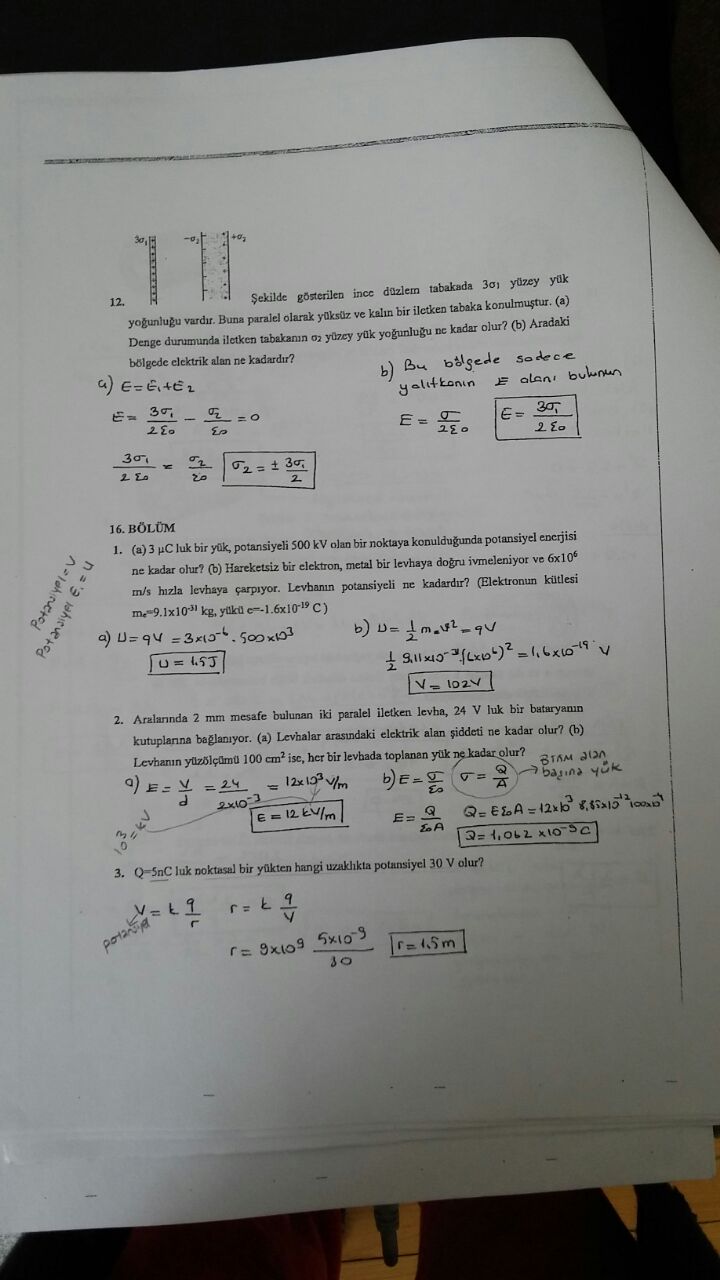 3σ₁ -σ₂ +σ₂
12. Şekilde gösterilen ince düzlem tabakada 3σ₁ yüzey yük
yoğunluğu vardır. Buna paralel olarak yüksüz ve kalın bir iletken tabaka konulmuştur. (a)
Denge durumunda iletken tabakanın σ₂ yüzey yük yoğunluğu ne kadar olur? (b) Aradaki
bölgede elektrik alan ne kadardır?
a) E = E₁ + E₂
E = 3σ₁/2ε₀ - σ₂/ε₀ = 0
3σ₁/2ε₀ = σ₂/ε₀ σ₂ = ± 3σ₁/2
b) Bu bölgede sadece
yalıtkanın E alanı bulunur
E = σ/2ε₀ E = 3σ₁/2ε₀
16. BÖLÜM
1. (a) 3 µC luk bir yük, potansiyeli 500 kV olan bir noktaya konulduğunda potansiyel enerjisi
ne kadar olur? (b) Hareketsiz bir elektron, metal bir levhaya doğru ivmeleniyor ve 6x10⁶
m/s hızla levhaya çarpıyor. Levhanın potansiyeli ne kadardır? (Elektronun kütlesi
mₑ=9.1x10⁻³¹ kg, yükü e=-1.6x10⁻¹⁹ C)
Potansiyel = V
Potansiyel E. = U
a) U = qV = 3x10⁻⁶ . 500x10³
U = 1.5J
b) U = 1/2 mₑϑ² = qV
1/2 9,11x10⁻³¹.(6x10⁶)² = 1,6x10⁻¹⁹ . V
V = 102V
2. Aralarında 2 mm mesafe bulunan iki paralel iletken levha, 24 V luk bir bataryanın
kutuplarına bağlanıyor. (a) Levhalar arasındaki elektrik alan şiddeti ne kadar olur? (b)
Levhanın yüzölçümü 100 cm² ise, her bir levhada toplanan yük ne kadar olur?
a) E = V/d = 24/2x10⁻³ = 12x10³ V/m
E = 12 kV/m
10³ = kV
b) E = σ/ε₀ σ = Q/A → Birim alan
başına yük
E = Q/ε₀A Q = Eε₀A = 12x10³ 8,85x10⁻¹² 100x10⁻⁴
Q = 1,062 x10⁻⁹ C
3. Q=5nC luk noktasal bir yükten hangi uzaklıkta potansiyel 30 V olur?
V = k q/r r = k q/V
potansiyel
r = 9x10⁹ 5x10⁻⁹/30 r = 1,5 m